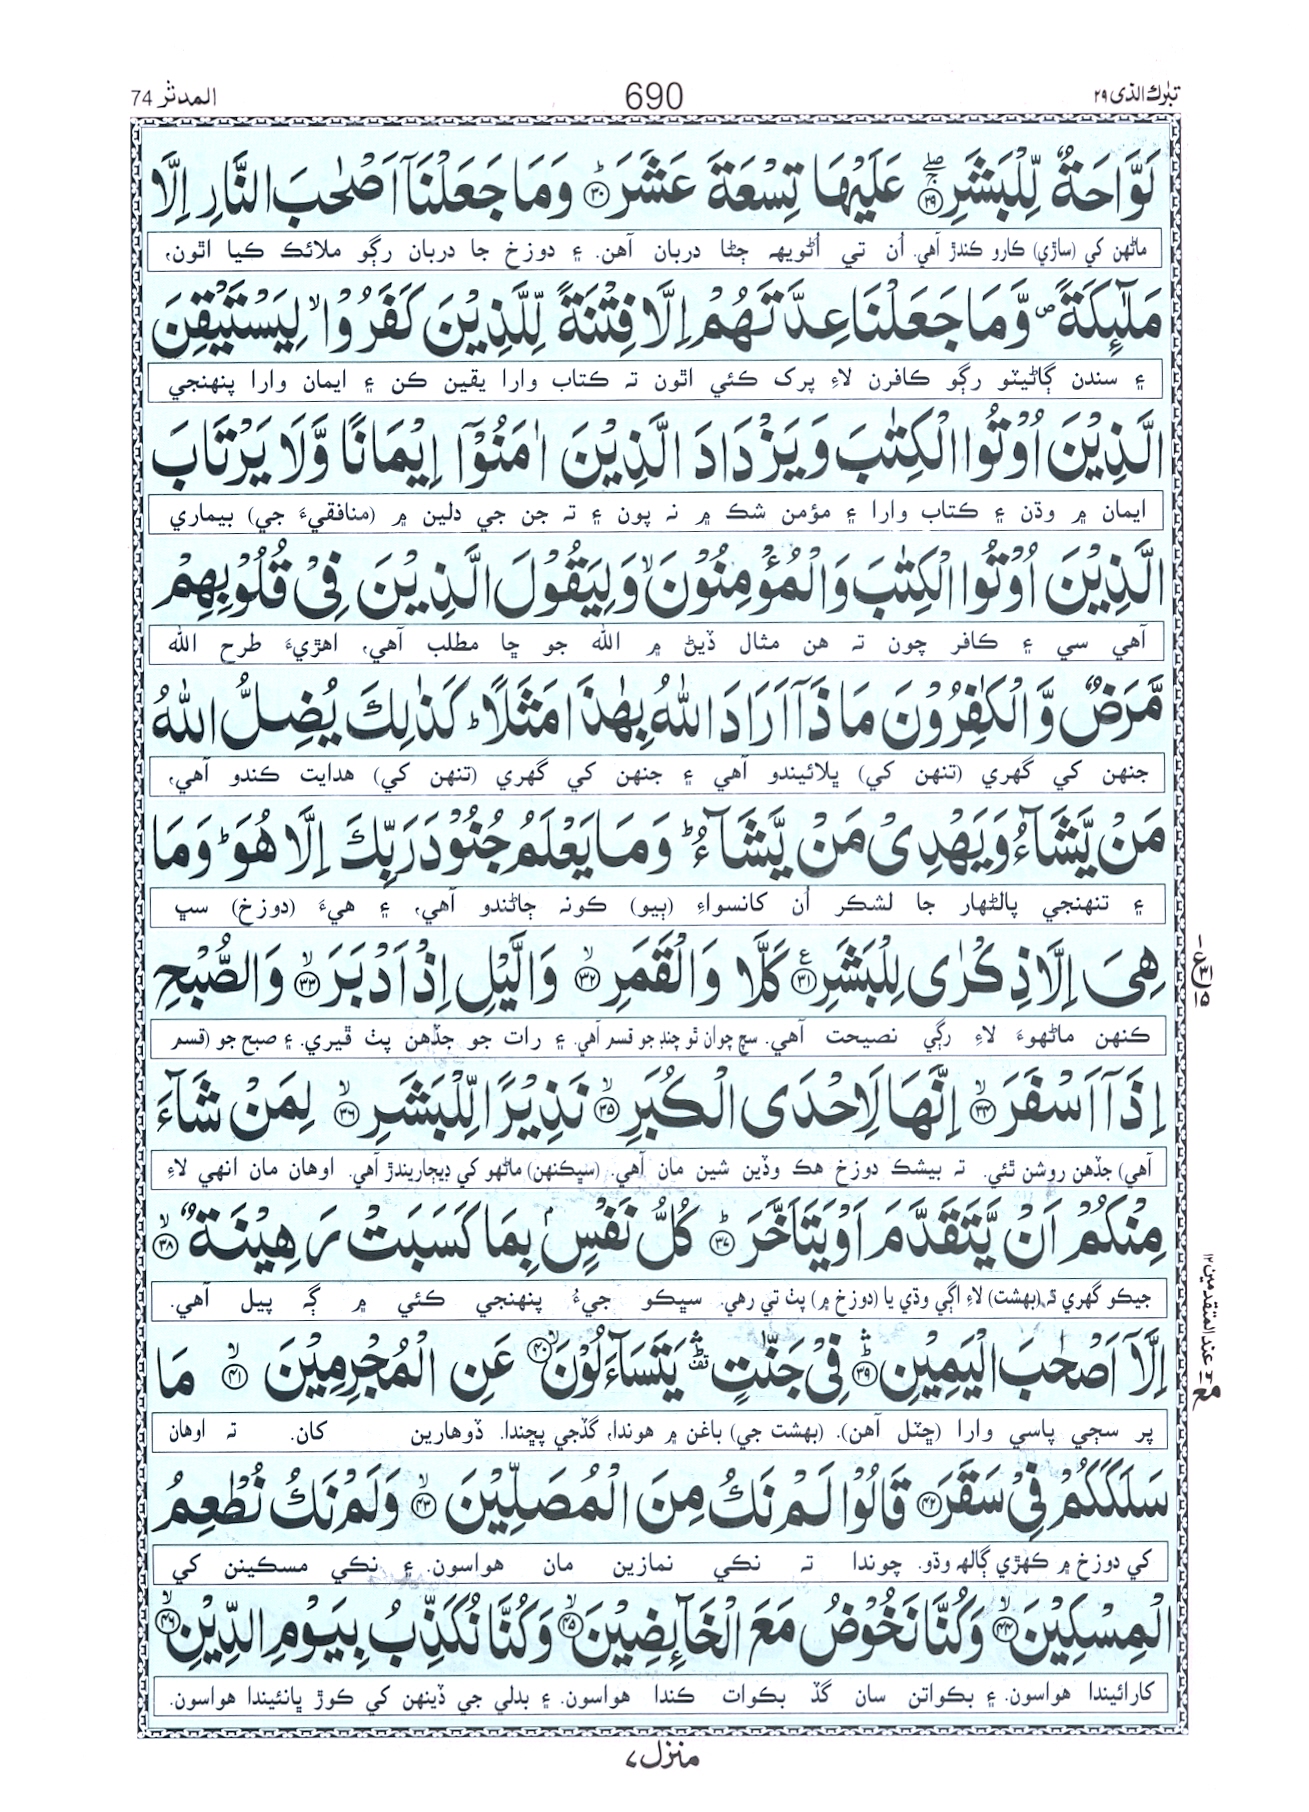 تبٰرك الذی ۲۹ 690 المدثر 74
لَوَّاحَةٌ لِّلْبَشَرِ ۚۖ ﴿۲۹﴾ عَلَيْهَا تِسْعَةَ عَشَرَ ؕ ﴿۳۰﴾ وَمَا جَعَلْنَاۤ اَصْحٰبَ النَّارِ اِلَّا
ماڻهن کي (ساڙي) ڪارو ڪندڙ آهي. اُن تي اُڻويهه ڄڻا دربان آهن. ۽ دوزخ جا دربان رڳو ملائڪ ڪيا اٿون،
مَلٰٓئِكَةً ۪ وَّمَا جَعَلْنَا عِدَّتَهُمْ اِلَّا فِتْنَةً لِّلَّذِيْنَ كَفَرُوْا ۙ لِيَسْتَيْقِنَ
۽ سندن ڳاڻيٽو رڳو ڪافرن لاءِ پرک ڪئي اٿون ته ڪتاب وارا يقين ڪن ۽ ايمان وارا پنهنجي
الَّذِيْنَ اُوْتُوا الْكِتٰبَ وَيَزْدَادَ الَّذِيْنَ اٰمَنُوْۤا اِيْمَانًا وَّلَا يَرْتَابَ
ايمان ۾ وڌن ۽ ڪتاب وارا ۽ مؤمن شڪ ۾ نه پون ۽ ته جن جي دلين ۾ (منافقيءَ جي) بيماري
الَّذِيْنَ اُوْتُوا الْكِتٰبَ وَالْمُؤْمِنُوْنَ ۙ وَلِيَقُوْلَ الَّذِيْنَ فِيْ قُلُوْبِهِمْ
آهي سي ۽ ڪافر چون ته هن مثال ڏيڻ ۾ الله جو ڇا مطلب آهي، اهڙيءَ طرح الله
مَّرَضٌ وَّالْكٰفِرُوْنَ مَاذَاۤ اَرَادَ اللّٰهُ بِهٰذَا مَثَلًا ؕ كَذٰلِكَ يُضِلُّ اللّٰهُ
جنهن کي گهري (تنهن کي) ڀلائيندو آهي ۽ جنهن کي گهري (تنهن کي) هدايت ڪندو آهي،
مَنْ يَّشَآءُ وَيَهْدِيْ مَنْ يَّشَآءُ ؕ وَمَا يَعْلَمُ جُنُوْدَ رَبِّكَ اِلَّا هُوَ ؕ وَمَا
۽ تنهنجي پالڻهار جا لشڪر اُن کانسواءِ (ٻيو) ڪونه ڄاڻندو آهي، ۽ هيءَ (دوزخ) سڀ
هِيَ اِلَّا ذِكْرٰى لِلْبَشَرِ ۧ ﴿۳۱﴾ كَلَّا وَالْقَمَرِ ۙ ﴿۳۲﴾ وَالَّيْلِ اِذْ اَدْبَرَ ۙ ﴿۳۳﴾ وَالصُّبْحِ
ڪنهن ماڻهوءَ لاءِ رڳي نصيحت آهي. سچ چوان ٿو چنڊ جو قسم آهي. ۽ رات جو جڏهن پٺ ڦيري. ۽ صبح جو (قسم
اِذَاۤ اَسْفَرَ ۙ ﴿۳۴﴾ اِنَّهَا لَاِحْدَى الْكُبَرِ ۙ ﴿۳۵﴾ نَذِيْرًا لِّلْبَشَرِ ۙ ﴿۳۶﴾ لِمَنْ شَآءَ
آهي) جڏهن روشن ٿئي. ته بيشڪ دوزخ هڪ وڏين شين مان آهي. (سڀڪنهن) ماڻهو کي ڊيڄاريندڙ آهي. اوهان مان انهي لاءِ
مِنْكُمْ اَنْ يَّتَقَدَّمَ اَوْ يَتَاَخَّرَ ؕ ﴿۳۷﴾ كُلُّ نَفْسٍۭ بِمَا كَسَبَتْ رَهِيْنَةٌ ۙ ﴿۳۸﴾
جيڪو گهري ته (بهشت) لاءِ اڳي وڌي يا (دوزخ ۾) پٺ تي رهي. سڀڪو جيءُ پنهنجي ڪئي ۾ ڳه پيل آهي.
اِلَّاۤ اَصْحٰبَ الْيَمِيْنِ ؕۛ ﴿۳۹﴾ فِيْ جَنّٰتٍ ۛ يَتَسَآءَلُوْنَ ۙ ﴿۴۰﴾ عَنِ الْمُجْرِمِيْنَ ۙ ﴿۴۱﴾ مَا
پر سڄي پاسي وارا (ڇٽل آهن). (بهشت جي) باغن ۾ هوندا، گڏجي پڇندا. ڏوهارين کان. ته اوهان
سَلَكَكُمْ فِيْ سَقَرَ ﴿۴۲﴾ قَالُوْا لَمْ نَكُ مِنَ الْمُصَلِّيْنَ ۙ ﴿۴۳﴾ وَلَمْ نَكُ نُطْعِمُ
کي دوزخ ۾ ڪهڙي ڳالهه وڌو. چوندا ته نڪي نمازين مان هواسون. ۽ نڪي مسڪينن کي
الْمِسْكِيْنَ ۙ ﴿۴۴﴾ وَكُنَّا نَخُوْضُ مَعَ الْخَآئِضِيْنَ ۙ ﴿۴۵﴾ وَكُنَّا نُكَذِّبُ بِيَوْمِ الدِّيْنِ ۙ ﴿۴۶﴾
کارائيندا هواسون. ۽ بڪواتن سان گڏ بڪوات ڪندا هواسون. ۽ بدلي جي ڏينهن کي ڪوڙ ڀانئيندا هواسون.
منزل ۷